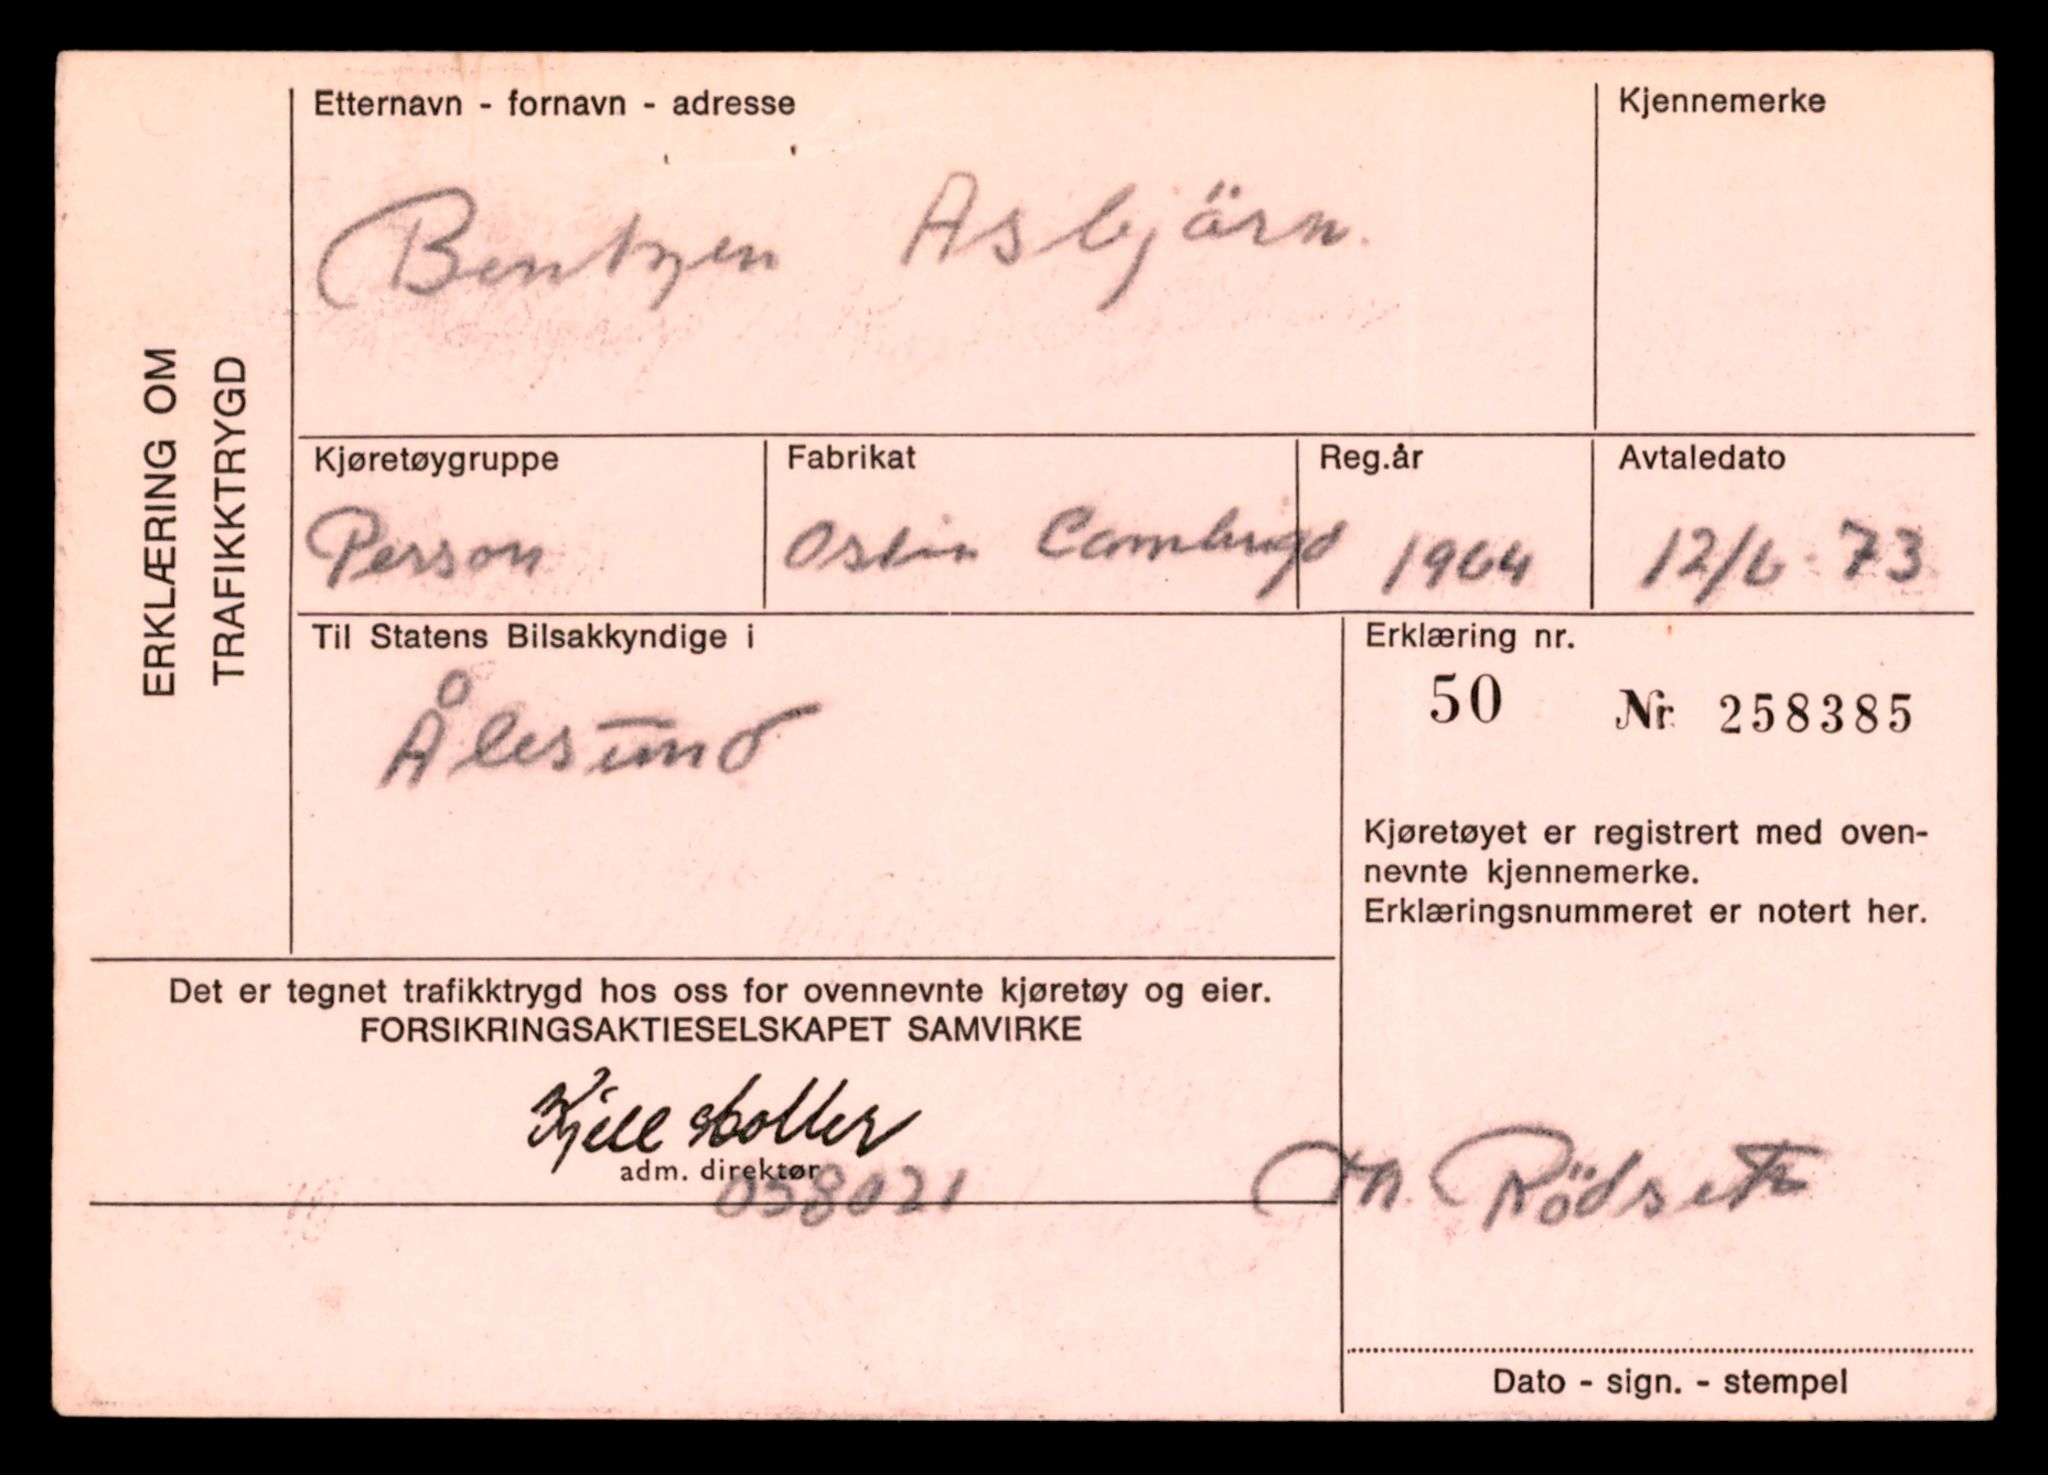 ERKLÆRING OM
TRAFIKKTRYGD
Etternavn - fornavn - adresse
Kjennemerke
Bentzen Asbjärn.
Kjøretøygruppe
Fabrikat
Reg.år
Avtaledato
Person
Ostin Cambrigd
1964
12/6-73
Til Statens Bilsakkyndige i
Ålesund
Erklæring nr.
50 Nr. 258385
Kjøretøyet er registrert med oven-
nevnte kjennemerke.
Erklæringsnummeret er notert her.
Det er tegnet trafikktrygd hos oss for ovennevnte kjøretøy og eier.
FORSIKRINGSAKTIESELSKAPET SAMVIRKE
Kjell Holler
adm. direktør
058021
M. Rödseth
Dato - sign. - stempel